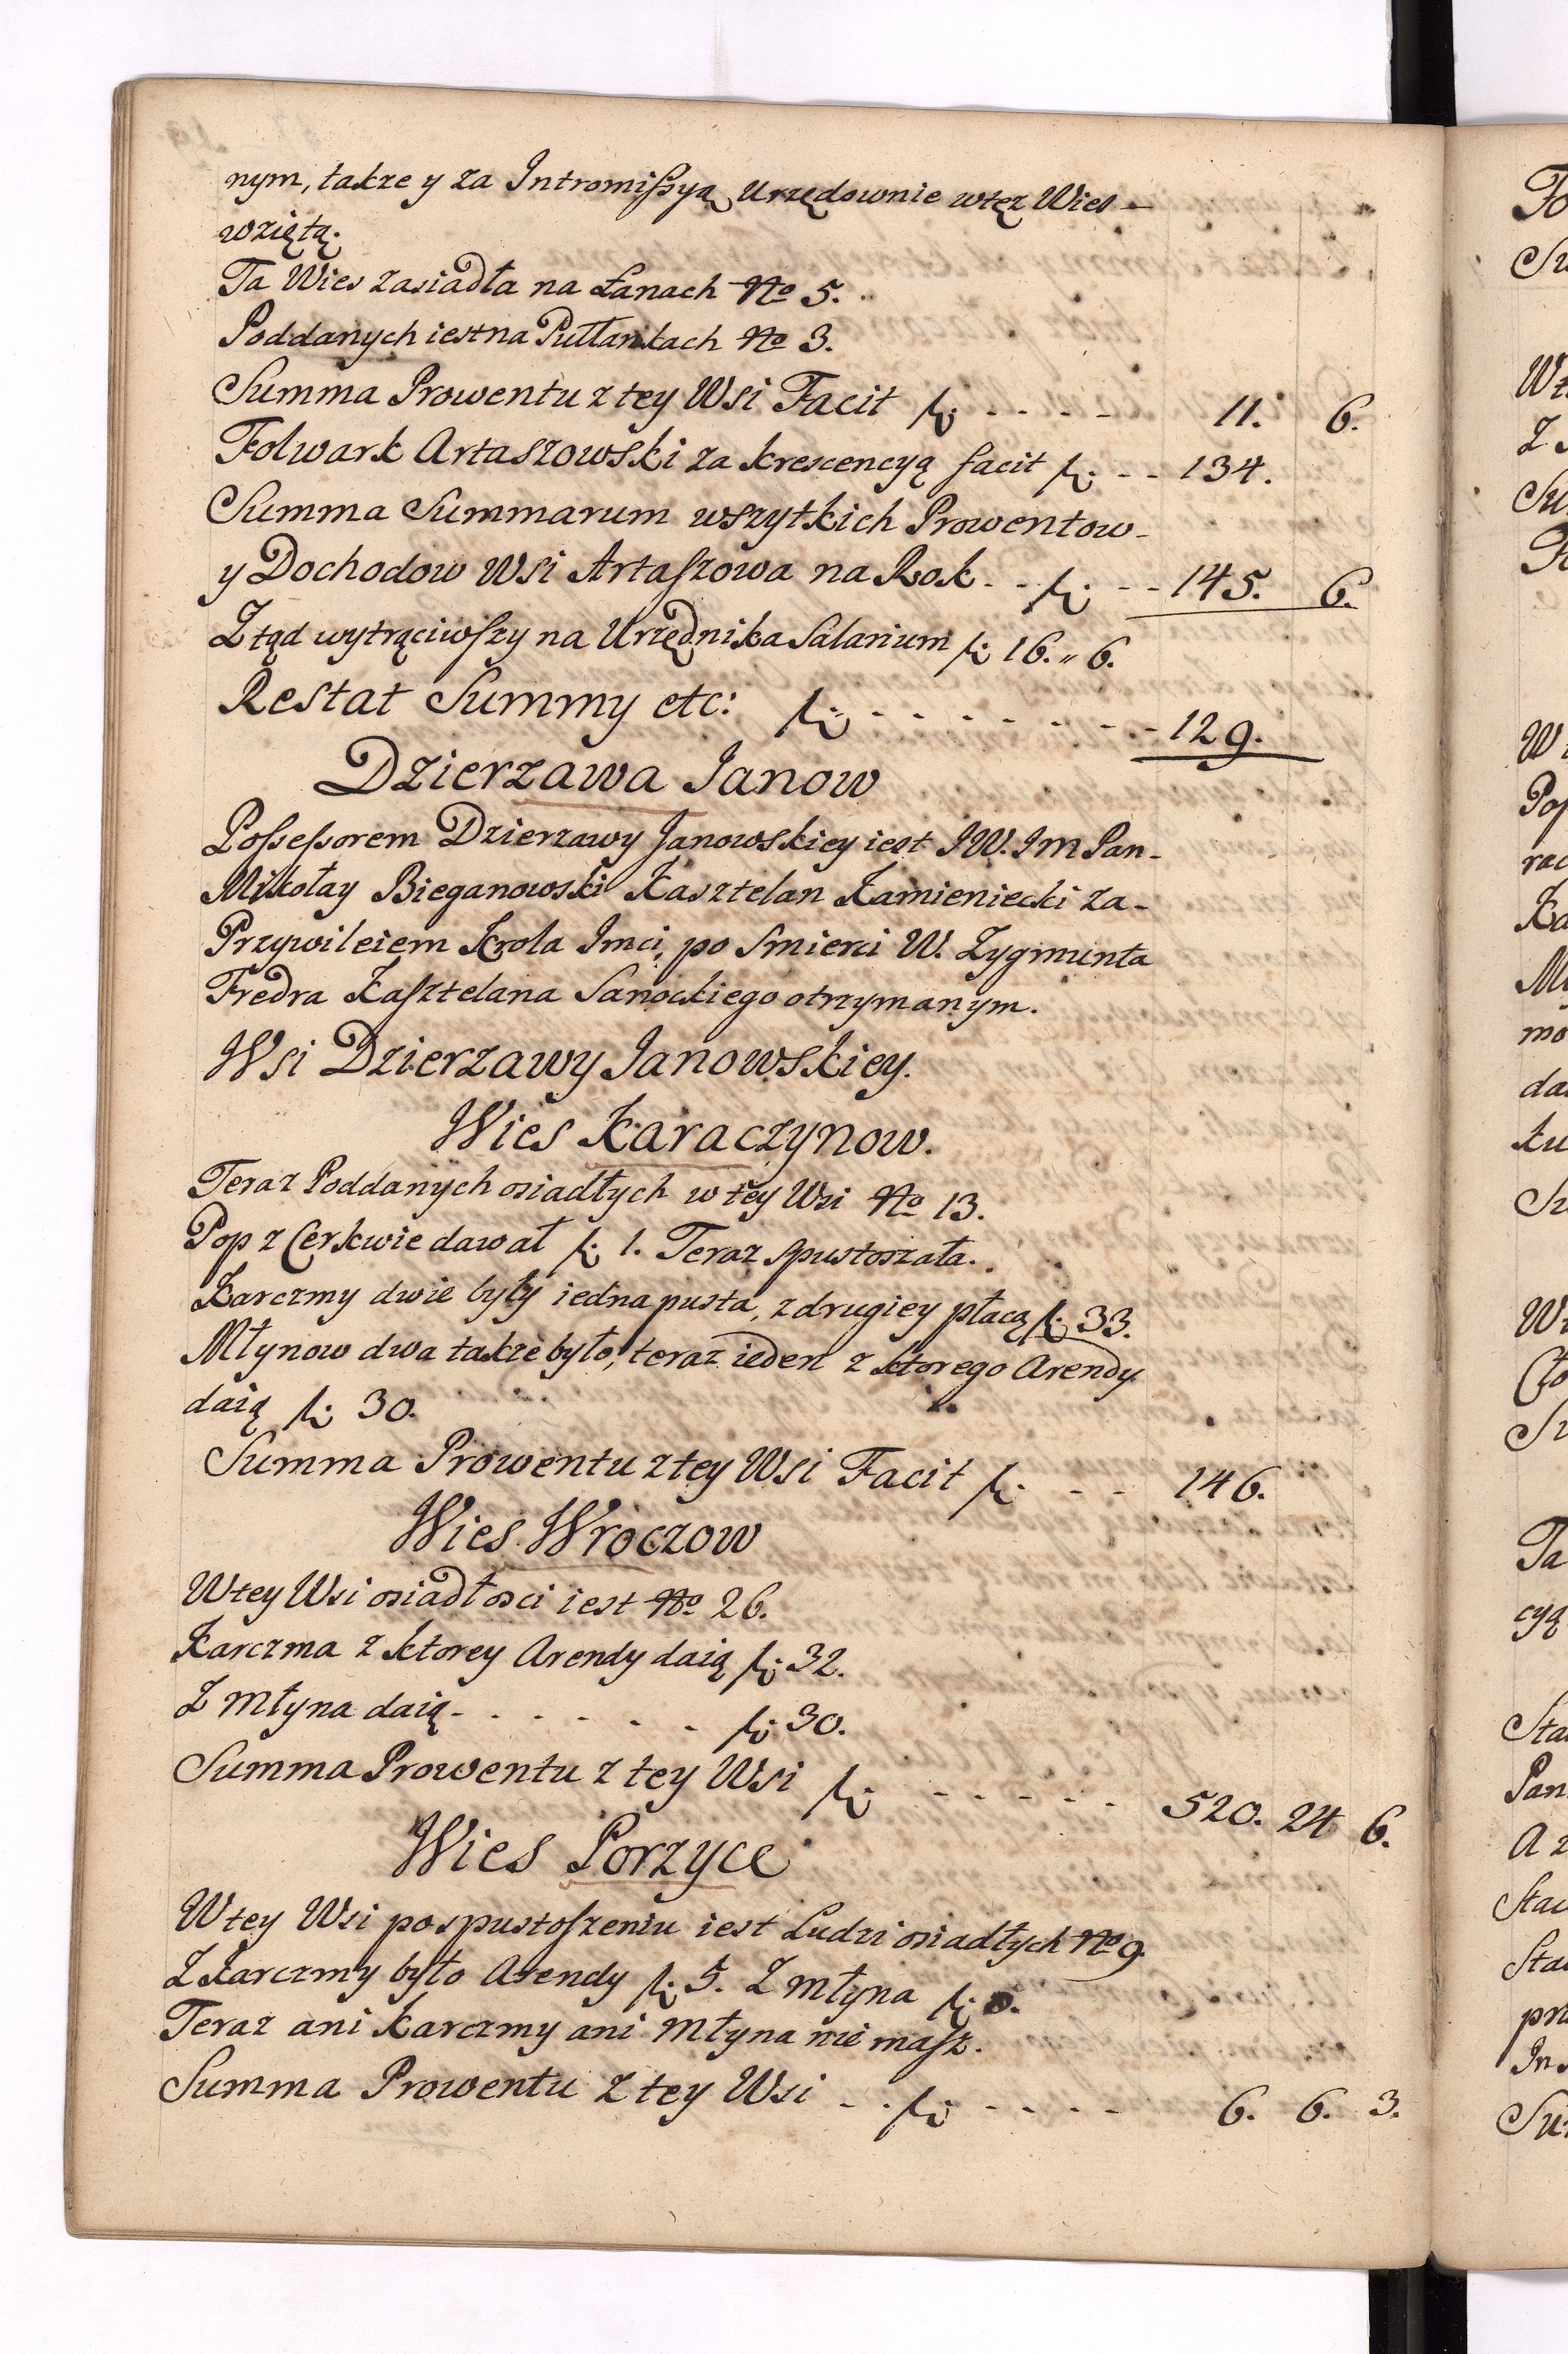 nym, takze y za Intromissyą Urzędownie wtęz Wies –
wziętą.
Ta Wies zasiadła na Łanach No 5.
Poddanych iest na Pułłankach No 3.
Summa Prowentu z tey Wsi Facit f: - - - - 11. 6.
Folwark Artaszowski za krescencyą facit f: - - 134.
Summa Summarum wszytkich Prowentow -
y Dochodow Wsi Artaszowa na Rok - - f: - - 145. 6.
Ztąd wytrąciwszy na Urzędnika Salarium f: 16. „ 6.
Restat Summy etc: f: - - - - - - - 129.
Dzierzawa Janow
Possessorem Dzierzawy Janowskiey iest JW. Jm Pan -
Mikołay Bieganowski Kasztelan Kamieniecki za -
Przywileiem Krola Jmci, po Smierci W. Zygmunta
Fredra Kasztelana Sanockiego otrzymanym.
Wsi Dzierzawy Janowskiey.
Wies Karaczynow.
Teraz Poddanych osiadłych w tey Wsi No 13.
Pop z Cerkwie dawał f: 1. Teraz spustoszała.
Karczmy dwie były iedna pusta, z drugiey płacą f: 33.
Młynow dwa takze było, teraz ieden z ktorego Arendy
daią f: 30.
Summa Prowentu z tey Wsi Facit f: - - 146.
Wies Wroczow
W tey Wsi osiadłosci iest No 26.
Karczma z ktorey Arendy daią f: 32.
Z Młyna daią - - - - - - f: 30.
Summa Prowentu z tey Wsi f: - - - - - 520. 24 6.
Wies Porzyce
W tey Wsi po spustoszeniu iest Ludzi osiadłych No 9.
Z Karczmy było Arendy f: 5. Z Młyna f:
Teraz ani Karczmy ani Młyna nie masz.
Summa Prowentu z tey Wsi - - f: - - - - 6. 6. 3.